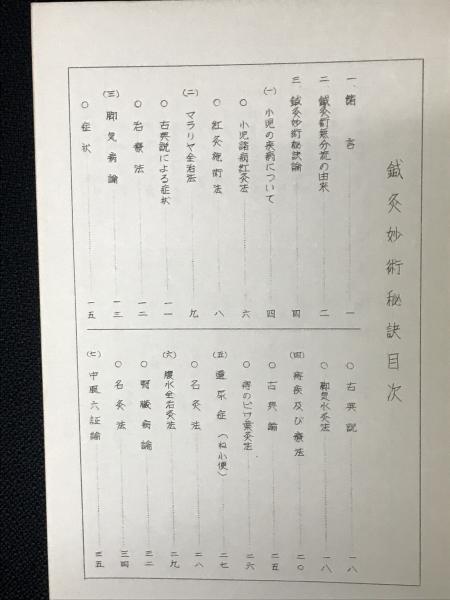 鍼灸妙術秘訣目次
一、緒言 一
二、鍼灸訂無分流の由来 二
三、鍼灸妙術秘訣論 四
(一) 小児の疾病について 四
○小児諸病紅灸法 六
○紅灸施術法 八
(二) マラリヤ全治法 九
○古典説による症状 一一
○治療法 一二
(三) 脚気病論 一三
○症状 一五
○古典説 一八
○脚気水灸法 一八
(四) 痔疾及び療法 二〇
○古典論 二五
○痔のビワ葉灸法 二六
(五) 遺尿症(ね小便) 二七
○名灸法 二八
(六) 腹水全治灸法 二九
○腎臓病論 三二
○名灸法 三四
(七) 中風六証論 三五